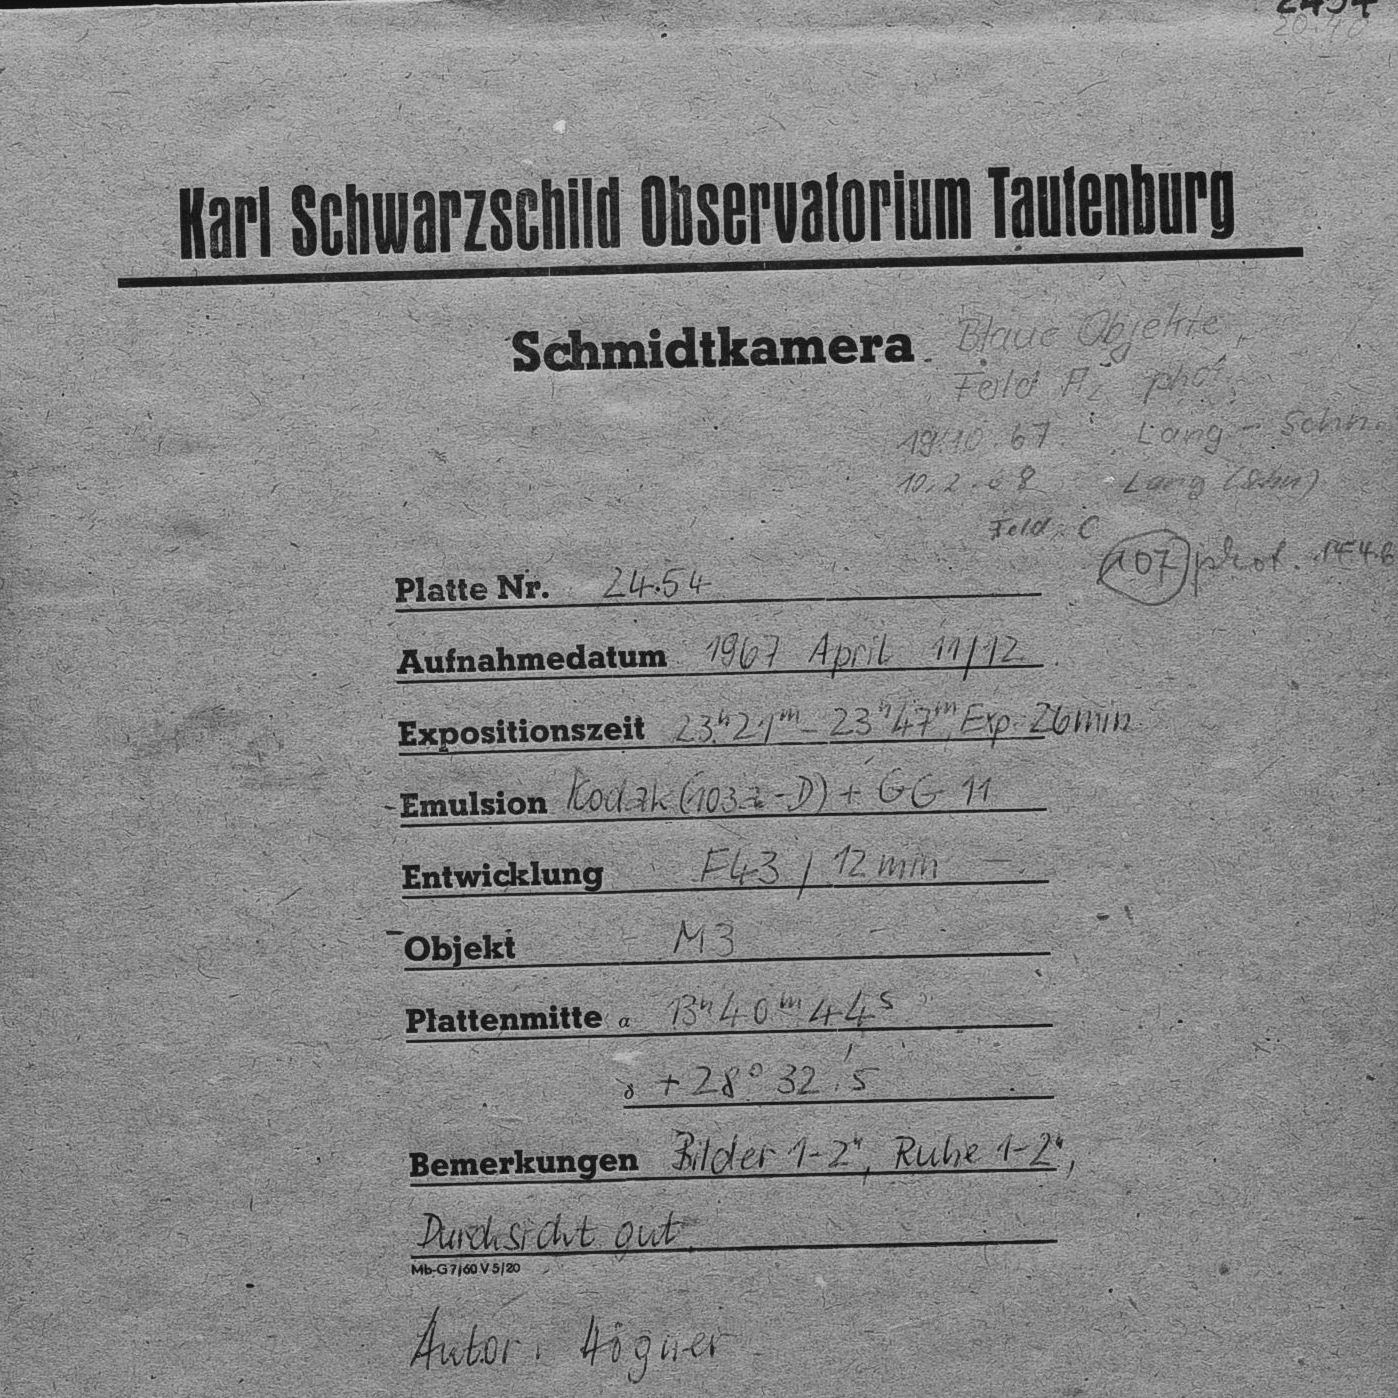 2454
20.40
Karl Schwarzschild Observatorium Tautenburg
Schmidtkamera
Blaue Objekte
Feld A2 phot.
19.10.67. Lang - Sohn.
10.2.68 Lang (Sohn)
Feld. C
107 phot.
Platte Nr. 2454
Aufnahmedatum 1967 April 11/12
Expositionszeit 23h21m - 23h47m Exp. 26min
Emulsion Kodak (103a-D) + GG 11
Entwicklung F43 / 12 min
Objekt M3
Plattenmitte α 13h 40m 44s
δ + 28° 32.'5
Bemerkungen Bilder 1-2", Ruhe 1-2",
Durchsicht gut.
Mb-G 7/60 V 5/20
Autor: Högner